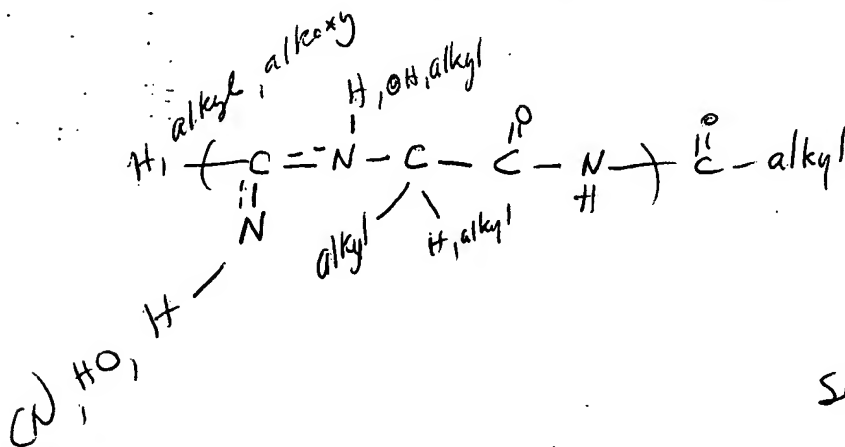 alkyl, alkoxy
H, OH, alkyl
O O
H, ( C = N - C - C - N ) C - alkyl
H
N alkyl H, alkyl
H
CN, HO,